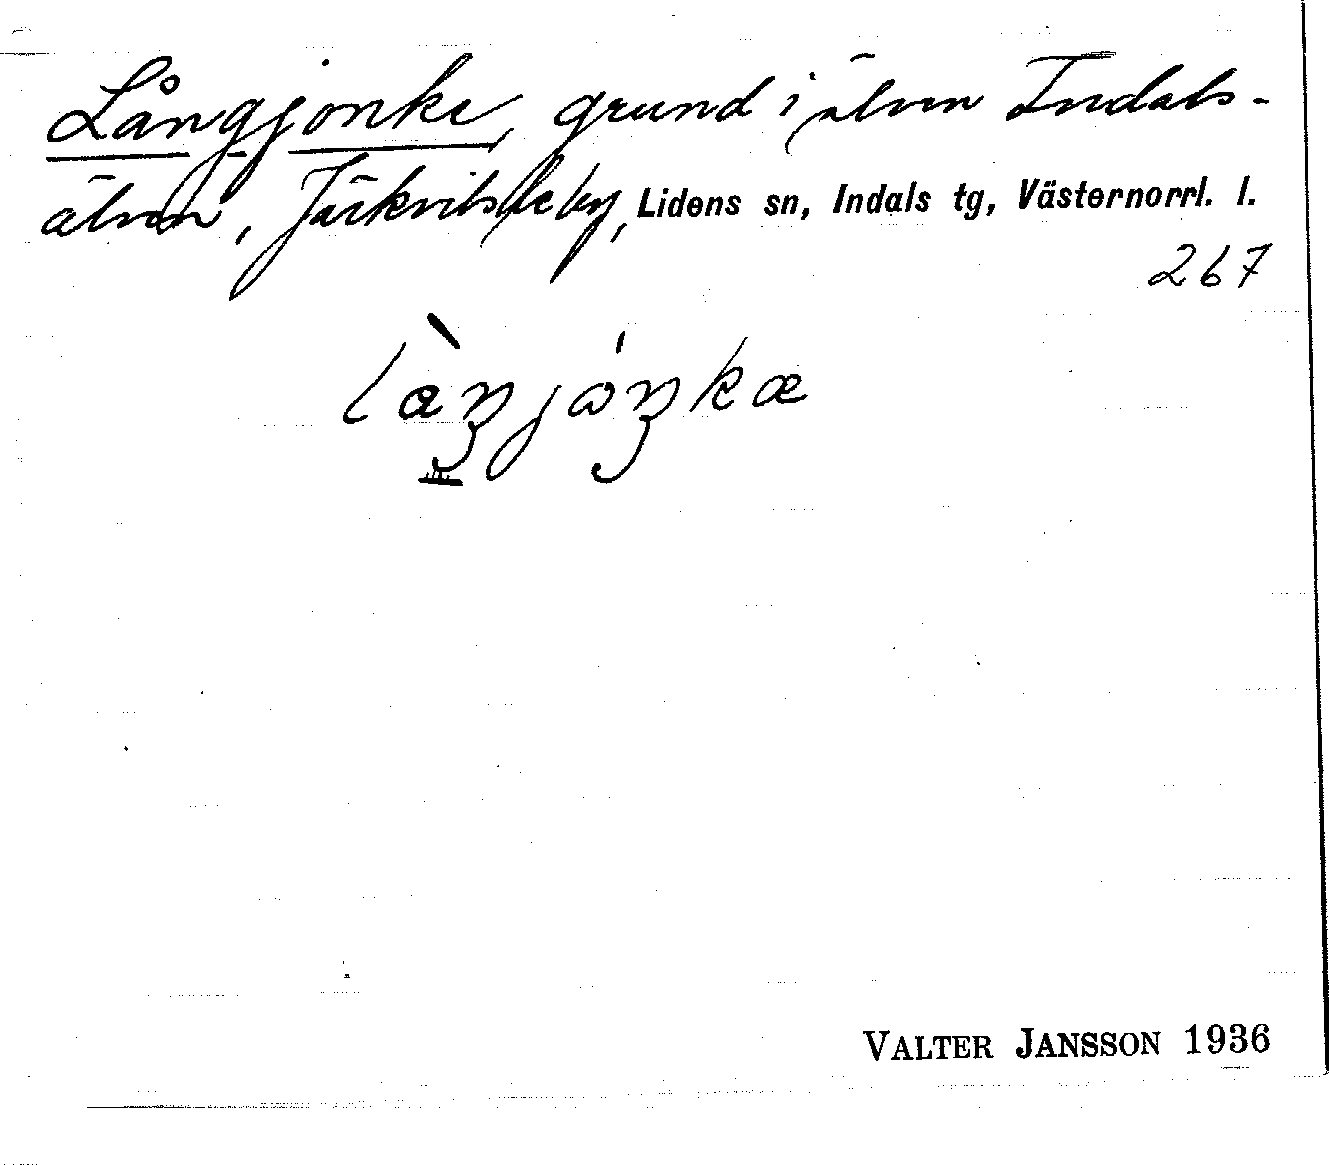 Långjonke, grund i älven Indals-
älven, Järkvitsle by, Lidens sn, Indals tg, Västernorrl. l.
267
VALTER JANSSON 1936